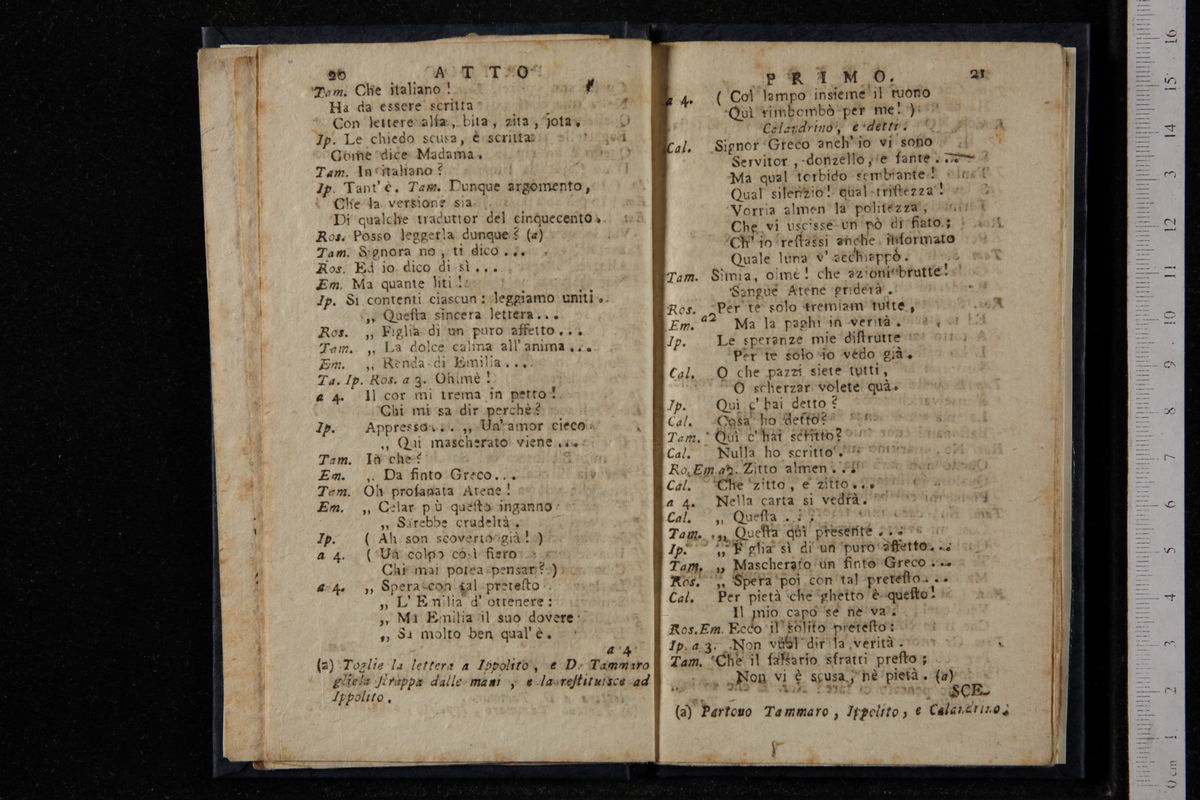 20 ATTO
Tam. Che italiano!
Ha da essere scritta
Con lettere alfa, bita, zita, jota.
Ip. Le chiedo scusa, è scritta
Come dice Madama.
Tam. In italiano?
Ip. Tant' è. Tam. Dunque argomento,
Che la versione sia
Di qualche traduttor del cinquecento.
Ros. Posso leggerla dunque? (a)
Tam. Signora no, ti dico...
Ros. Ed io dico di sì...
Em. Ma quante liti!
Ip. Si contenti ciascun: leggiamo uniti.
„ Questa sincera lettera...
Ros. „ Figlia di un puro affetto...
Tam. „ La dolce calma all' anima...
Em. „ Renda di Emilia...
Ta. Ip. Ros. a 3. Ohimè!
a 4. Il cor mi trema in petto!
Chi mi sa dir perchè?
Ip. Appresso... „ Un' amor cieco
„ Qui mascherato viene...
Tam. In che?
Em. „ Da finto Greco...
Tam. Oh profanata Atene!
Em. „ Celar più questo inganno
„ Sarebbe crudeltà.
Ip. ( Ah son scoverto già! )
a 4. ( Un colpo così fiero
Chi mai potea pensar? )
a 4. „ Spera con tal pretesto
„ L' Emilia d' ottenere:
„ Ma Emilia il suo dovere
„ Sa molto ben qual' è.
a 4
(a) Toglie la lettera a Ippolito, e D. Tammaro
gliela strappa dalle mani, e la restituisce ad
Ippolito.
PRIMO. 21
a 4. ( Col lampo insieme il tuono
Quì rimbombò per me! )
Calandrino, e detti.
Cal. Signor Greco anch' io vi sono
Servitor, donzello, e fante...
Ma qual torbido sembiante!
Qual silenzio! qual tristezza!
Vorria almen la politezza,
Che vi uscisse un pò di fiato;
Ch' io restassi anche informato
Quale luna v' acchiappò.
Tam. Simia, oimè! che azioni brutte!
Sangue Atene griderà.
Ros. Per te solo tremiam tutte,
Em. a2 Ma la paghi in verità.
Ip. Le speranze mie distrutte
Per te solo io vedo già.
Cal. O che pazzi siete tutti,
O scherzar volete quà.
Ip. Quì c' hai detto?
Cal. Cosa ho detto?
Tam. Quì c' hai scritto?
Cal. Nulla ho scritto.
Ro. Em. a2. Zitto almen...
Cal. Che zitto, e zitto...
a 4. Nella carta si vedrà.
Cal. „ Questa...
Tam. „ Questa quì presente...
Ip. „ Figlia sì di un puro affetto...
Tam. „ Mascherato un finto Greco...
Ros. „ Spera poi con tal pretesto...
Cal. Per pietà che ghetto è questo!
Il mio capo se ne va.
Ros. Em. Ecco il solito pretesto:
Ip. a 3. Non vuol dir la verità.
Tam. Che il falsario sfratti presto;
Non vi è scusa, nè pietà. (a)
SCE-
(a) Partono Tammaro, Ippolito, e Calandrino.
0 cm 1 2 3 4 5 6 7 8 9 10 11 12 13 14 15 16